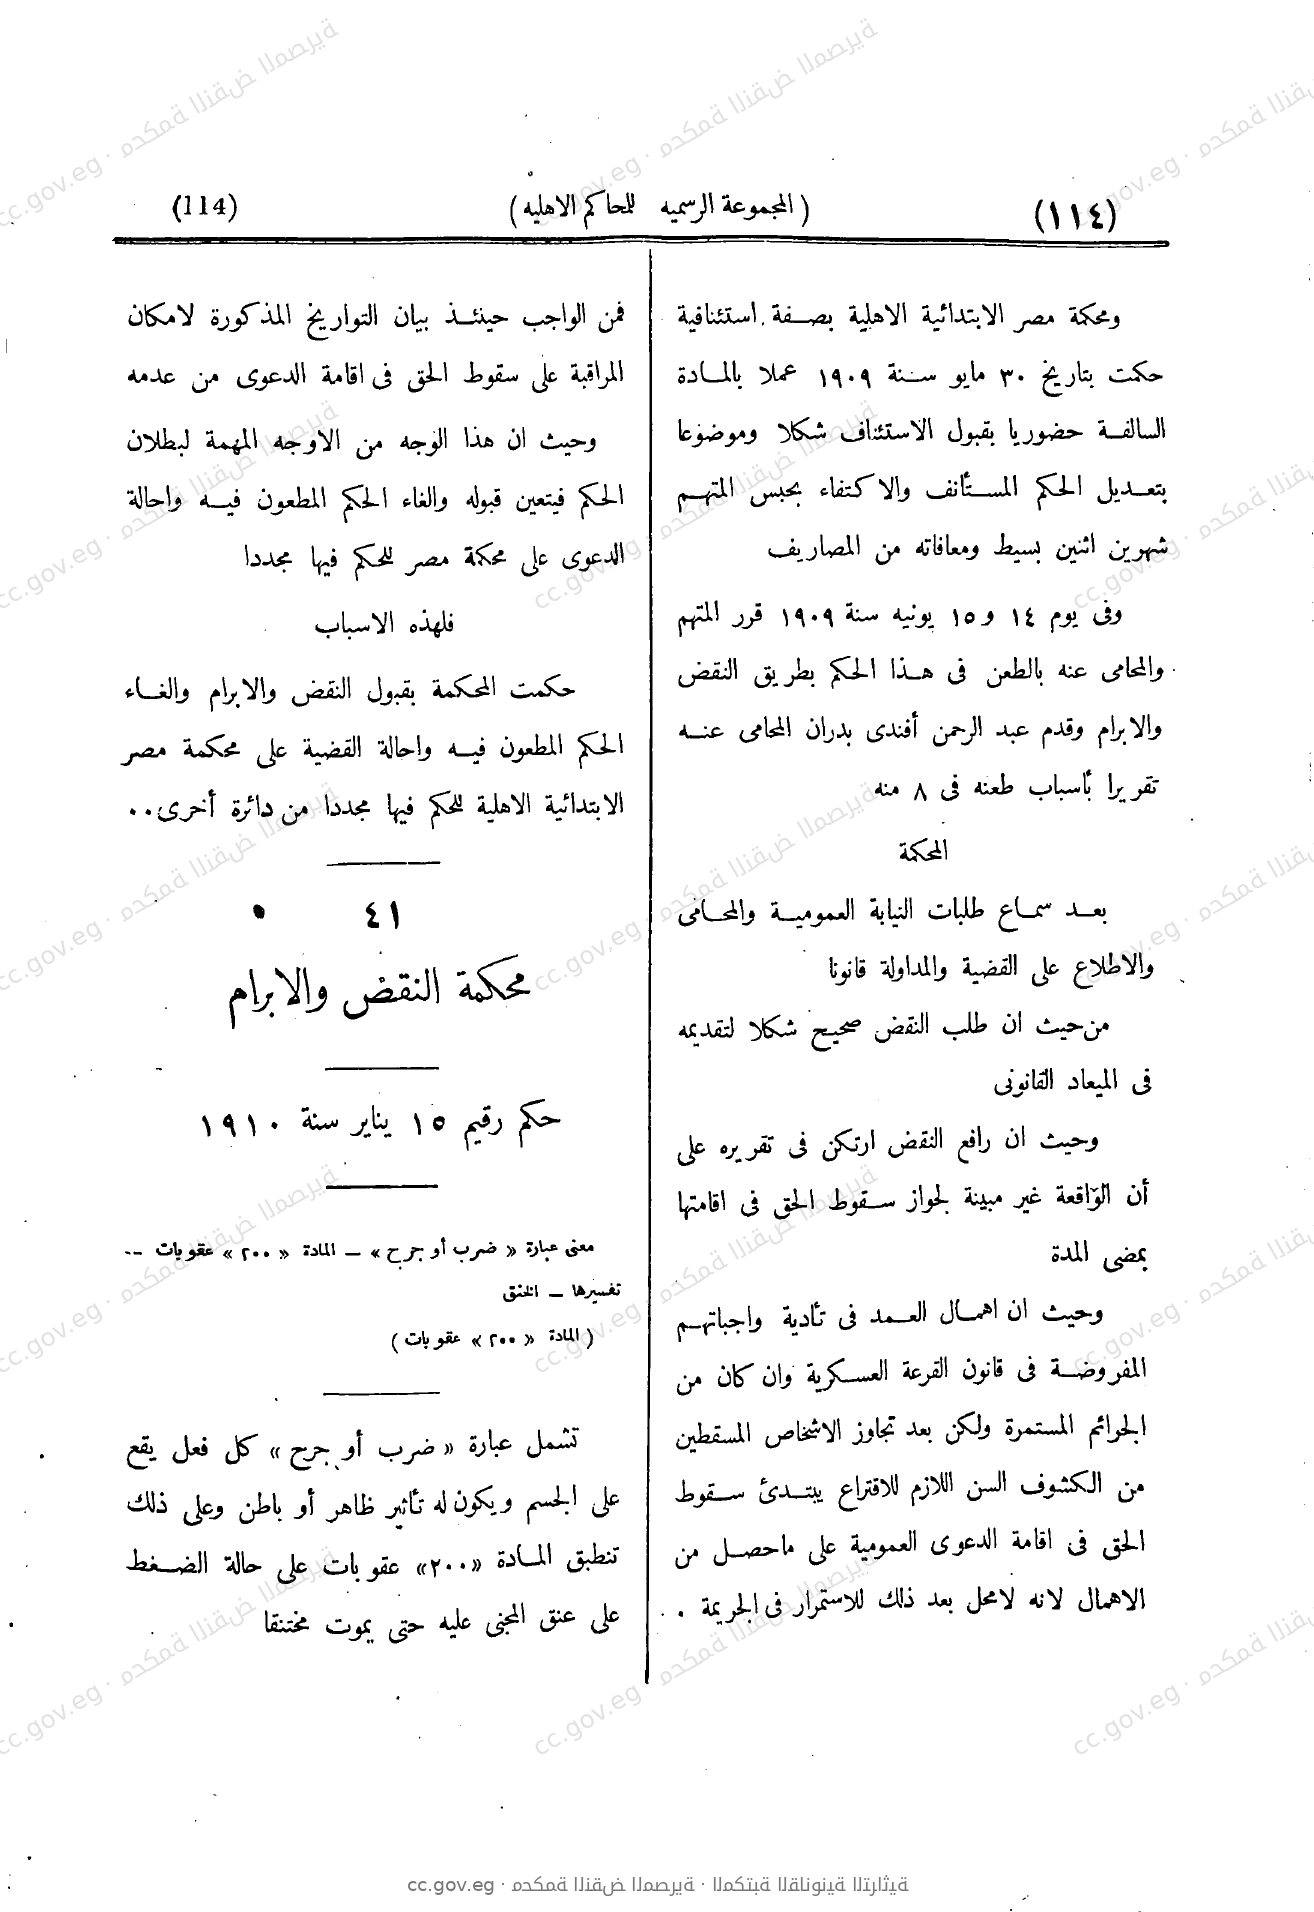 (١١٤)
(المجموعة الرسميه للمحاكم الاهليه)
(114)
ومحكمة مصر الابتدائية الاهلية بصفة استئنافية
حكمت بتاريخ ٣٠ مايو سنة ١٩٠٩ عملا بالمادة
السالفة حضوريا بقبول الاستئناف شكلا وموضوعا
بتعديل الحكم المستأنف والاكتفاء بحبس المتهم
شهرين اثنين بسيط ومعافاته من المصاريف
وفى يوم ١٤ و١٥ يونيه سنة ١٩٠٩ قرر المتهم
والمحامى عنه بالطعن فى هذا الحكم بطريق النقض
والابرام وقدم عبد الرحمن أفندى بدران المحامى عنه
تقريرا بأسباب طعنه فى ٨ منه
المحكمة
بعد سماع طلبات النيابة العمومية والمحامى
والاطلاع على القضية والمداولة قانونا
من حيث ان طلب النقض صحيح شكلا لتقديمه
فى الميعاد القانونى
وحيث ان رافع النقض ارتكن فى تقريره على
أن الواقعة غير مبينة لجواز سقوط الحق فى اقامتها
بمضى المدة
وحيث ان اهمال العمد فى تأدية واجباتهم
المفروضة فى قانون القرعة العسكرية وان كان من
الجرائم المستمرة ولكن بعد تجاوز الاشخاص المسقطين
من الكشوف السن اللازم للاقتراع يبتدئ سقوط
الحق فى اقامة الدعوى العمومية على ماحصل من
الاهمال لانه لامحل بعد ذلك للاستمرار فى الجريمة .
فمن الواجب حينئذ بيان التواريخ المذكورة لامكان
المراقبة على سقوط الحق فى اقامة الدعوى من عدمه
وحيث ان هذا الوجه من الاوجه المهمة لبطلان
الحكم فيتعين قبوله والغاء الحكم المطعون فيه واحالة
الدعوى على محكمة مصر للحكم فيها مجددا
فلهذه الاسباب
حكمت المحكمة بقبول النقض والابرام والغاء
الحكم المطعون فيه واحالة القضية على محكمة مصر
الابتدائية الاهلية للحكم فيها مجددا من دائرة أخرى..
٤١
محكمة النقض والابرام
حكم رقيم ١٥ يناير سنة ١٩١٠
معنى عبارة « ضرب أو جرح » — المادة « ٢٠٠ » عقوبات —
تفسيرها — الخنق
( المادة « ٢٠٠ » عقوبات )
تشمل عبارة « ضرب أو جرح » كل فعل يقع
على الجسم ويكون له تأثير ظاهر أو باطن وعلى ذلك
تنطبق المادة «٢٠٠» عقوبات على حالة الضغط
على عنق المجنى عليه حتى يموت مختنقا
cc.gov.eg · محكمة النقض المصرية · المكتبة القانونية التراثية